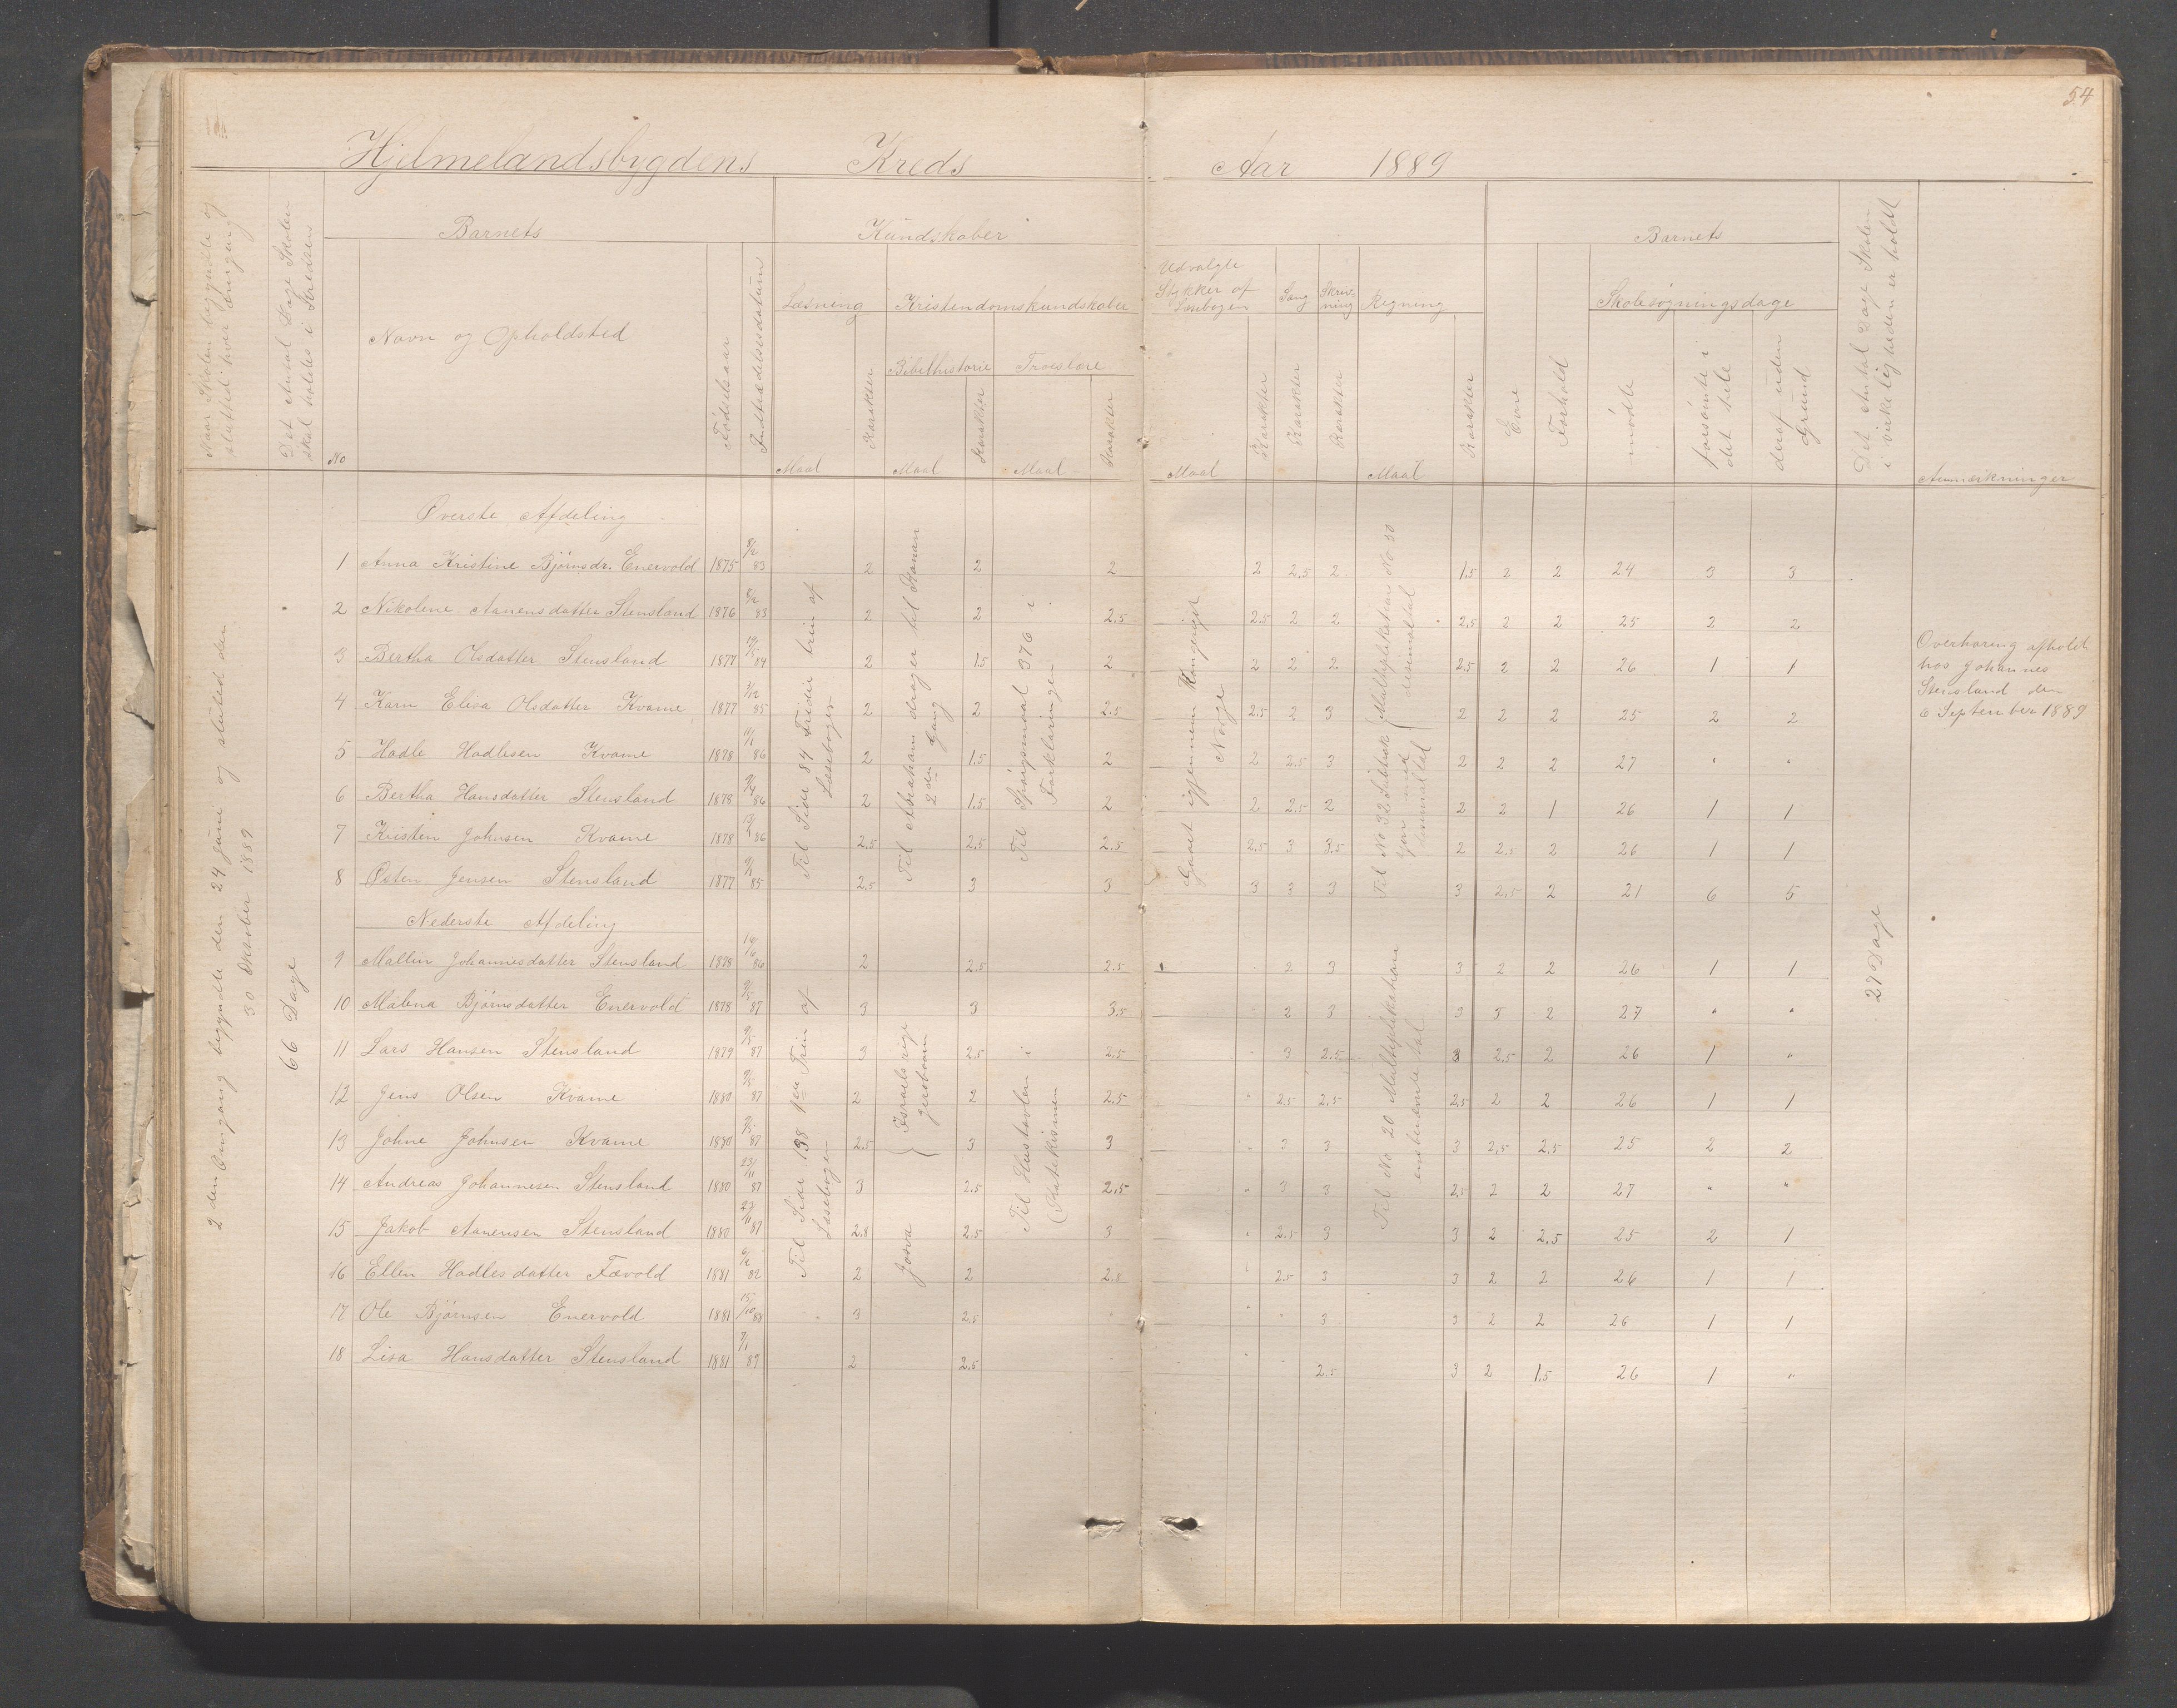 54
Hjelmelandsbygdens Kreds Aar 1889
Naar Skolen begyndte og slutted hver Omgang
Det Antal Dage Skolen skal holdes i Kredsen
Barnets
No
Navn og Opholdsted
Fødselsaar
Indtrædelsesdatum
Kundskaber
Læsning
Maal
Karakter
Kristendomskundskaber
Bibelhistorie
Maal
Karakter
Troeslære
Maal
Karakter
Udvalgte Stykker af Læsebogen
Maal
Karakter
Sang
Karakter
Skrivning
Karakter
Regning
Maal
Karakter
Barnets
Evne
Forhold
Skolesøgningsdage
mødte
forsømte i det hele
deraf uden Grund
Det Antal Dage Skolen i virkeligheden er holdt
Anmærkninger
2den Omgang begyndte den 24 Juni og sluted den 30 Oktober 1889
66 Dage
Øverste Afdeling
1 Anna Kristine Bjørnsdr. Enervold 1875 8/2 83 2 2 2 2 2,5 2 1.5 2 2 24 3 3
2 Nikoline Aanensdatter Stensland 1876 8/2 83 2 2 2.5 2.5 2 2 2,5 2 2 25 2 2
3 Bertha Olsdatter Stensland 1877 19/5 84 2 1.5 2 2 2 2 2.5 2 2 26 1 1
4 Karn Elisa Olsdatter Kvame 1877 85 2 2 2.5 2.5 2 3 2 2 2 25 2 2
5 Hadle Hadlesen Kvame 1878 11/1 86 2 1.5 2 2 2.5 3 2 2 2 27 " "
6 Bertha Hansdatter Stensland 1878 86 2 1.5 2 2 2.5 2 2 2 1 26 1 1
7 Kristen Johnsen Kvame 1878 86 2.5 2,5 2.5 2.5 3 3.5 2 2.5 2 26 1 1
8 Østen Jensen Stensland 1877 85 2,5 3 3 3 3 3 3 2,5 2 21 6 5
Til Side 84 Tredie trin af Læsebogen
Til Abraham drager til Kanan 2den Gang
Til Spørgsmaal 376 i Forklaringen
Gaaet igjennem Kongeriget Norge
Til No 32 {Multiplikation No 50 desimaltal
Overhøring afholdt
hos Johannes
Stensland den
6 September 1889
Nederste Afdeling
9 Mallin Johannesdatter Stensland 1878 14/6 86 2 2.5 2.5 2 3 3 2 2 26 1 1
10 Malena Bjørnsdatter Enervold 1878 9/5 87 3 3 3.5 2 3 3 3 2 27 " "
11 Lars Hansen Stensland 1879 9/5 87 3 2.5 2.5 " 3 2.5 3 2.5 2 26 1 "
12 Jens Olsen Kvame 1880 9/5 87 2 2 2.5 " 2.5 2.5 2.5 2 2 26 1 1
13 Johne Johnsen Kvame 1880 9/5 87 2.5 3 3 " 3 3 3 2,5 2,5 25 2 2
14 Andreas Johannesen Stensland 1880 23/11 87 3 2.5 2,5 " 3 3 2,5 2 2 27 " "
15 Jakob Aanensen Stensland 1880 23/11 87 2.8 2.5 3 " 2.5 3 3 2 2,5 25 2 1
16 Ellen Hadlesdatter Fævold 1881 82 2 2 2.5 2.5 3 3 2 2 26 1 1
17 Ole Bjørnsen Enervold 1881 15/10 88 3 2.5 " " 3 3 2 2 26 1 1
18 Lisa Hansdatter Stensland 1881 7/1 89 2 2.5 " " 2.5 3 2 1.5 26 1 "
Til Side 138 1ste Trin af Læsebogen
Josva { Israels rige Jeroboam
Til Hustavlen i (Katekismen
Til No 20 Multiplikation med benævnte tal
27 Dage